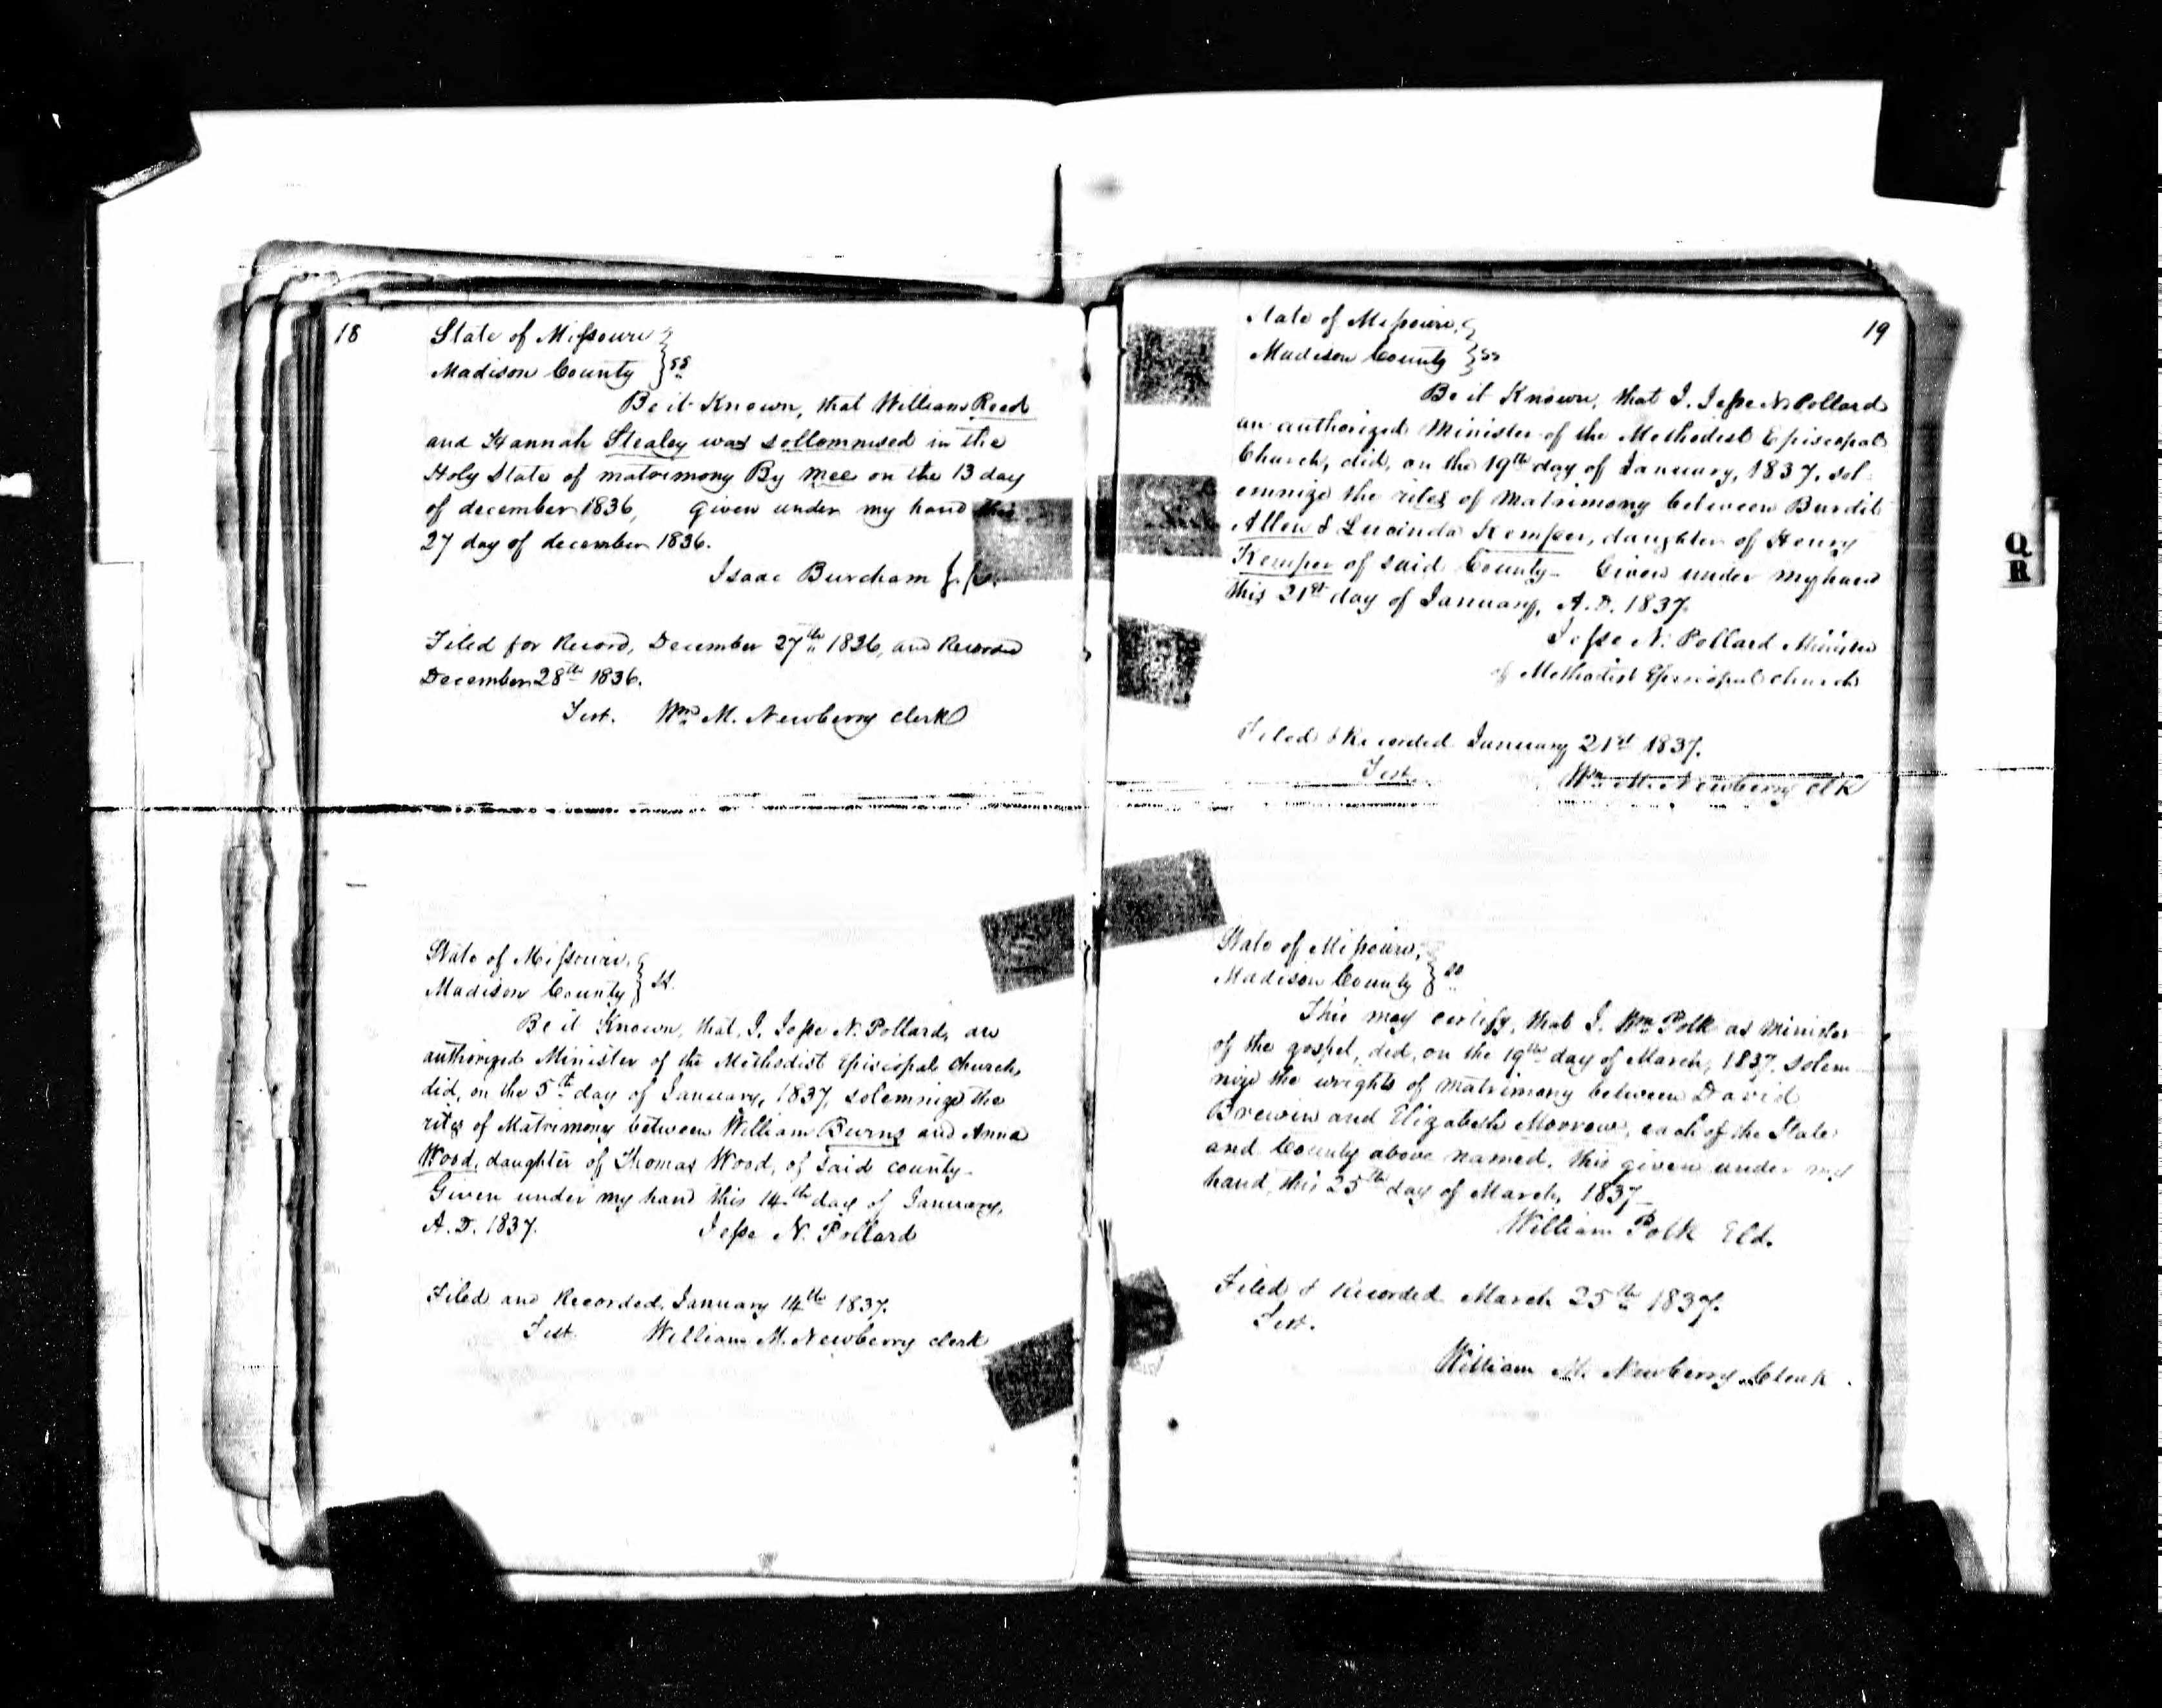 18
State of Missouri }
Madison County } ss
Be it Known, that William Reed
and Hannah Stealey was sollomnised in the
Holy State of matrimony By mee on the 13 day
of december 1836, given under my hand this
27 day of december 1836.
Isaac Burcham J. P.
Filed for Record, December 27th 1836, and Recorded
December 28th 1836.
Test. Wm M. Newberry Clerk
State of Missouri, }
Madison County } sst.
Be it Known, that, I, Jesse N. Pollard, an
authorized Minister of the Methodist Episcopal Church,
did, on the 5th day of January, 1837, solemnize the
rites of Matrimony between William Burns and Anna
Wood, daughter of Thomas Wood, of said county—
Given under my hand this 14th day of January,
A.D. 1837. Jesse N. Pollard
Filed and Recorded, January 14th 1837.
Test. William M. Newberry clerk
19
State of Missouri, }
Madison County } ss
Be it Known, that I, Jesse N. Pollard
an authorized Minister of the Methodist Episcopal
Church, did, on the 19th day of January, 1837, sol-
emnize the rites of Matrimony between Burdit
Allen & Lucinda Kemper, daughter of Henry
Kemper of said County— Given under my hand
this 21st day of January, A.D. 1837.
Jesse N. Pollard Minister
of Methodist Episcopal Church
Filed & Recorded January 21st 1837.
Test. Wm M. Newberry clk
State of Missouri, }
Madison County } ss
This may certify, that I, Wm Polk as minister
of the gospel, did, on the 19th day of March, 1837, solem-
nize the wrights of matrimony between David
Brewin and Elizabeth Morrow, each of the State
and County above named, this given under my
hand, this 25th day of March, 1837—
William Polk Eld.
Filed & Recorded March 25th 1837.
Test.
William M. Newberry, Clerk.
Q
R